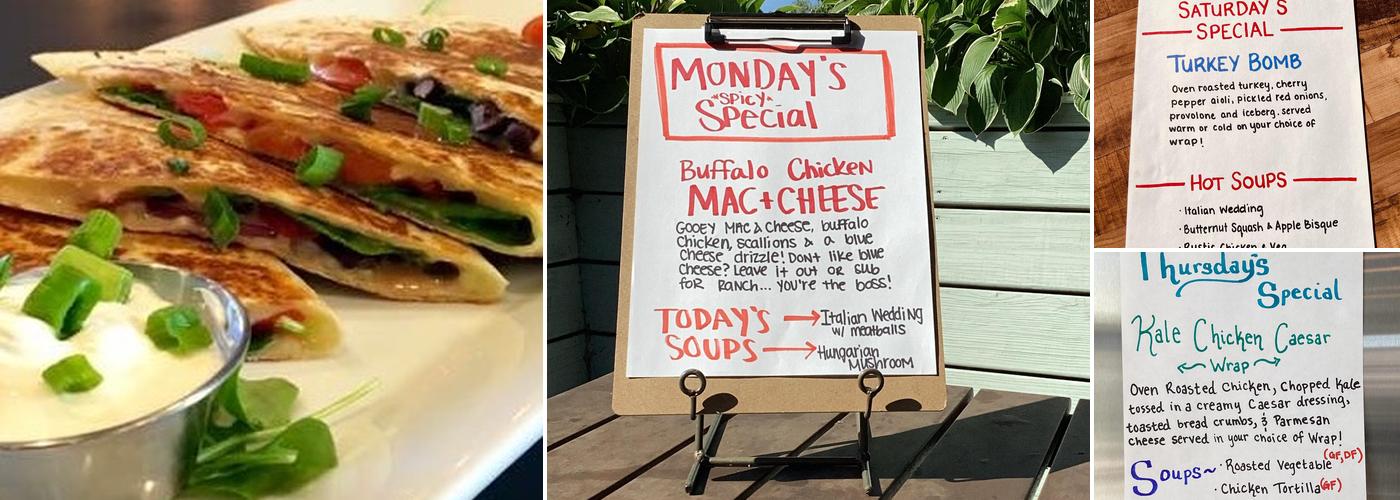 MONDAY'S
*SPICY*
Special
Buffalo Chicken
MAC+CHEESE
GOOEY MAC & Cheese, buffalo
Chicken, scallions & a blue
Cheese drizzle! Don't like blue
Cheese? Leave it out or sub
for Ranch... you're the boss!
TODAY'S → Italian Wedding
w/ meatballs
SOUPS → Hungarian
Mushroom
SATURDAY'S
SPECIAL
TURKEY BOMB
Oven roasted turkey, cherry
pepper aioli, pickled red onions,
provolone and iceberg. served
warm or cold on your choice of
wrap!
HOT SOUPS
· Italian Wedding
· Butternut Squash & Apple Bisque
· Rustic Chicken & Veg
Thursday's
Special
Kale Chicken Caesar
Wrap
Oven Roasted Chicken, Chopped Kale
tossed in a creamy Caesar dressing,
toasted bread crumbs, & Parmesan
cheese served in your choice of Wrap!
Soups~ · Roasted Vegetable (GF, DF)
· Chicken Tortilla (GF)